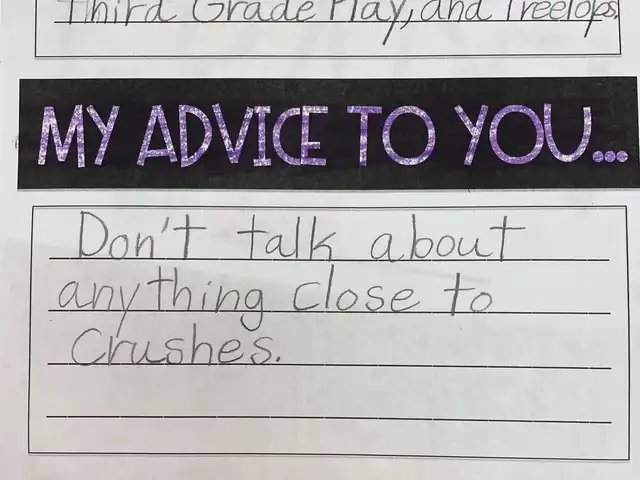 Third Grade Play, and Treetops.
MY ADVICE TO YOU...
Don't talk about
anything close to
Crushes.